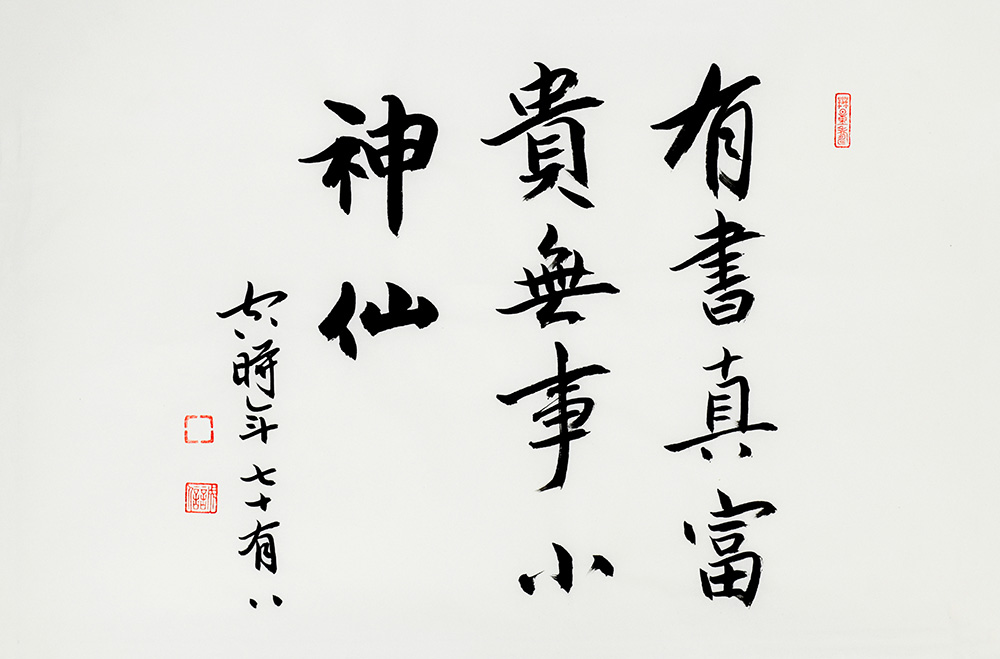 有書真富
貴無事小
神仙
時年七十有八